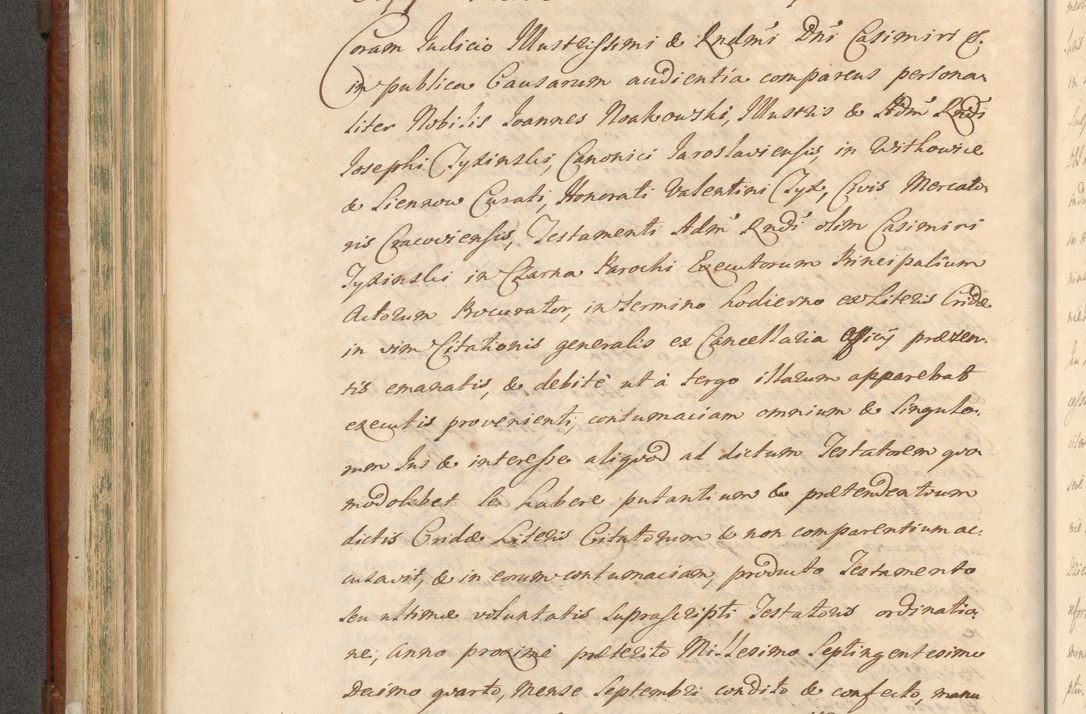 Coram Iudicio Illustrissimi & Rndmi Dni Casimiri &.
in publica Causarum audientia comparens persona-
liter Nobilis Ioannes Noakowski, Illustris & Admˢ Rndi
Iosephi Tyzinski, Canonici Iaroslaviensis, in Witkowice
& Siennow Curati, Honorati Valentini Tyz, Civis Mercato-
ris Cracoviensis, Testamenti Admˢ Rndi olim Casimiri
Tyzinski in Czarna Parochi Executorum Principalium
Actorum Procurator, in termino hodierno ex Literis Cridæ
in vim Citationis generalis ex Cancellaria officij præsen-
tis emanatis, & debitè ut à tergo illarum apparebat
executis provenienti, contumaciam omnium & singulo-
rum Ius & interesse aliquod ad dictum Testatorem quo-
modolibet se habere putantium & prætendentium
dictis Cridæ Literis Citatorum & non comparentium ac-
cusavit, & in eorum contumaciam, producto Testamento
seu ultimæ voluntatis suprascripti Testatoris ordinatio-
ne, Anno proxime præterito Millesimo Septingentesimo
Decimo quarto, Mense Septembri condito & confecto, manu